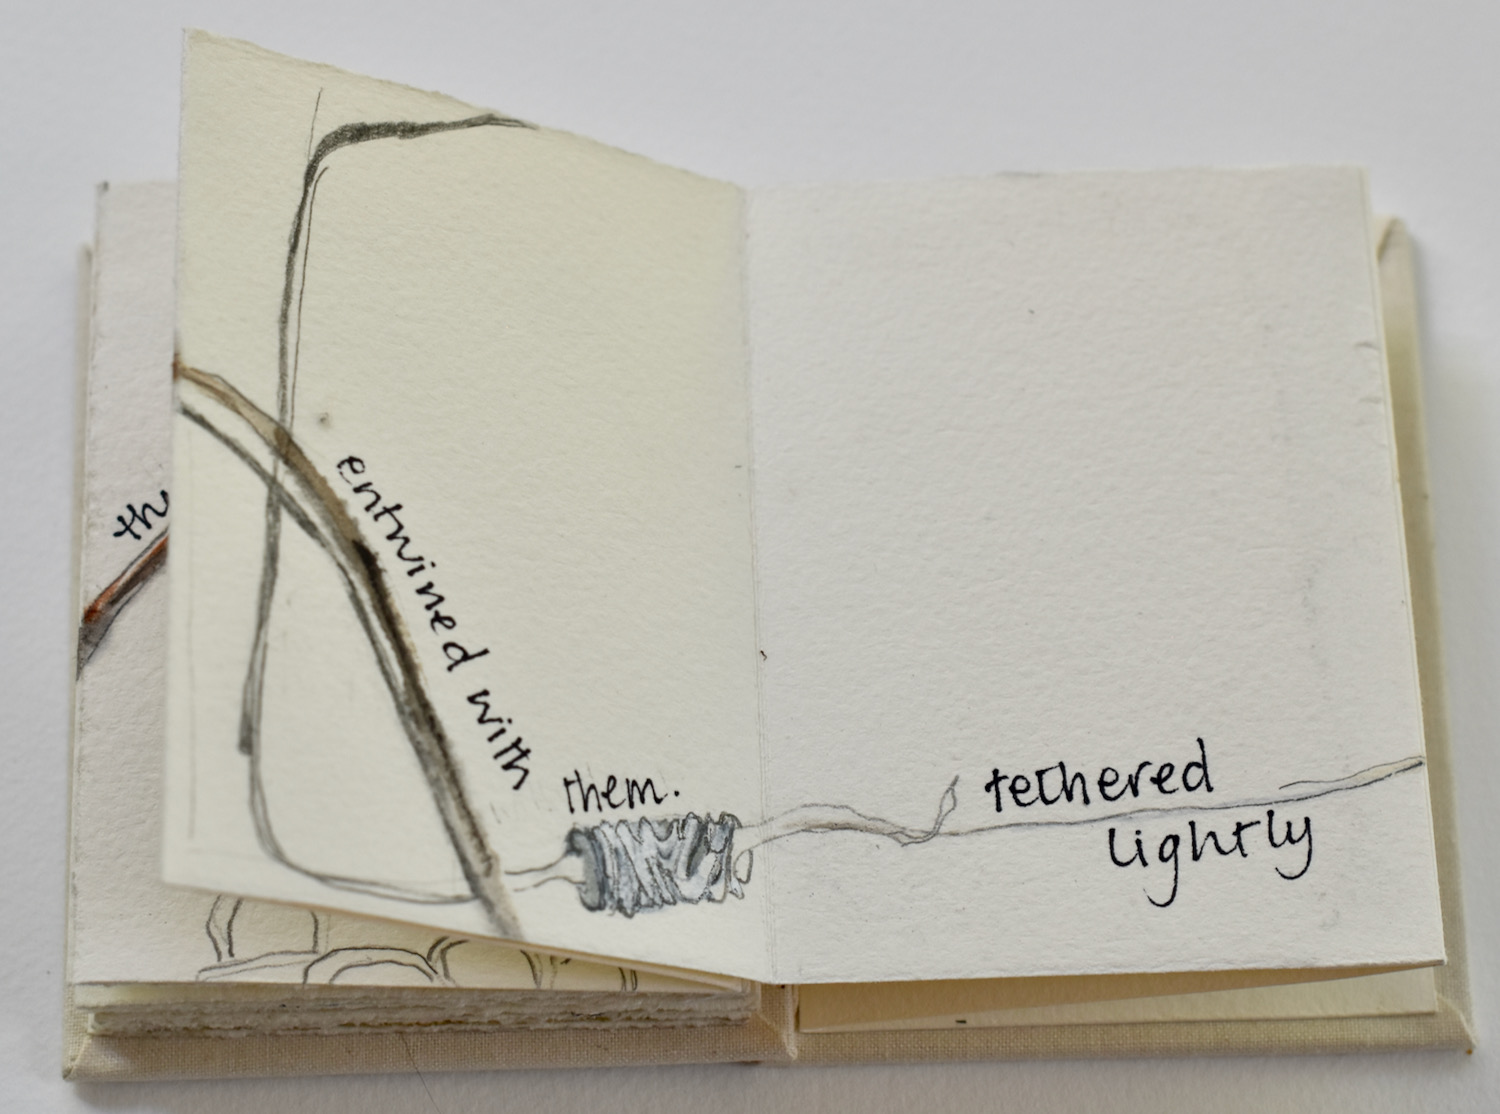 th
entwined with
them.
tethered
lightly